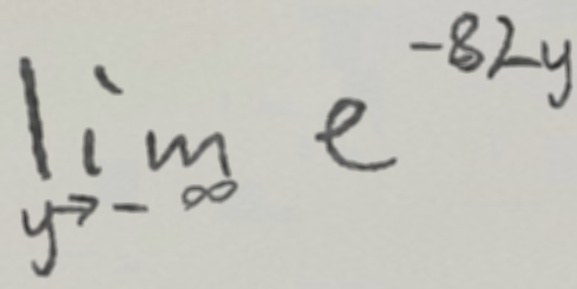 lim_{y→-∞} e^{-82y}